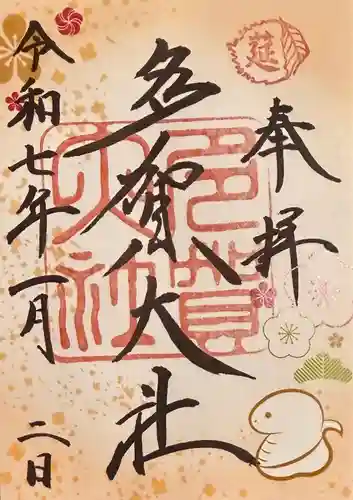 奉拝
莚
多賀大社
多賀大社
令和七年一月二日